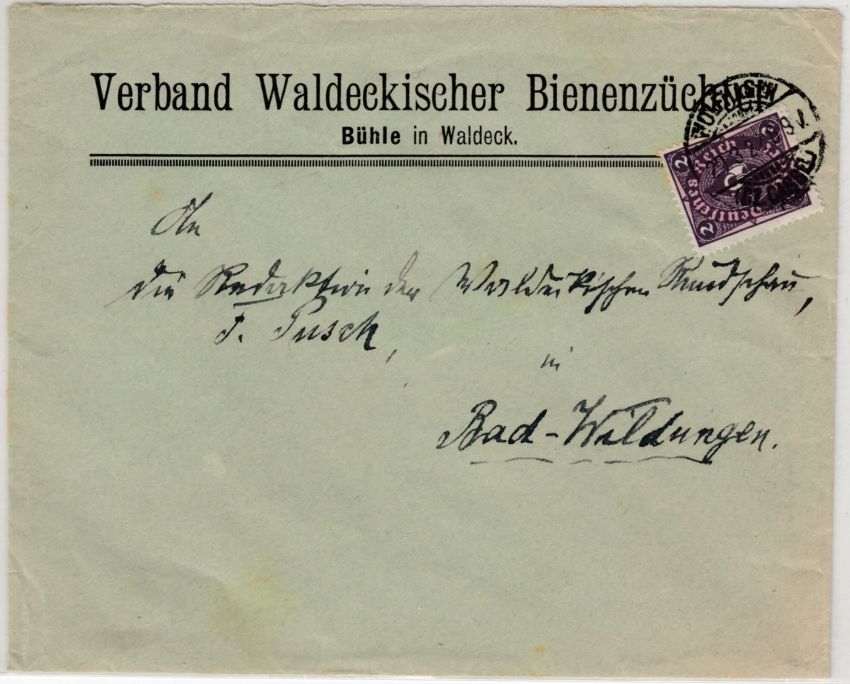 Verband Waldeckischer Bienenzüch
Bühle in Waldeck.
2 Deutsches Reich 2
An
die Redaktion der Waldeckischen Rundschau,
F. Pusch,
in
Bad-Wildungen.